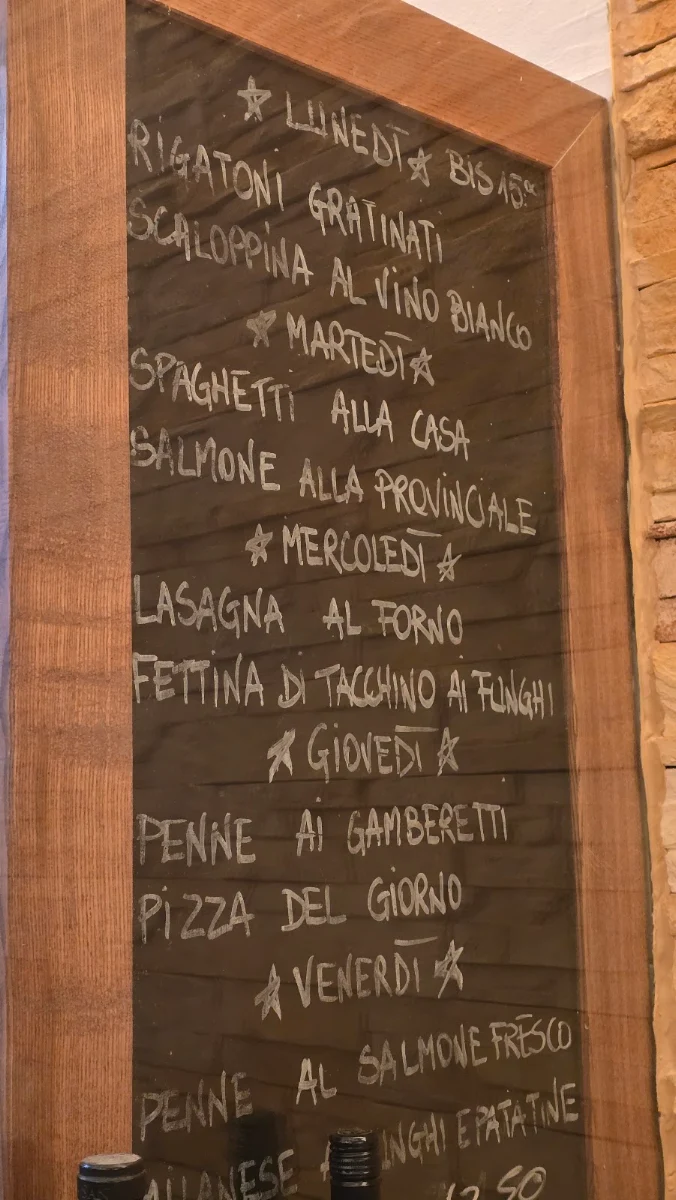 ☆ LUNEDÌ ☆ BIS 15.
RIGATONI GRATINATI
SCALOPPINA AL VINO BIANCO
☆ MARTEDÌ ☆
SPAGHETTI ALLA CASA
SALMONE ALLA PROVINCIALE
☆ MERCOLEDÌ ☆
LASAGNA AL FORNO
FETTINA DI TACCHINO AI FUNGHI
☆ GIOVEDÌ ☆
PENNE AI GAMBERETTI
PIZZA DEL GIORNO
☆ VENERDÌ ☆
PENNE AL SALMONE FRESCO
E PATATINE